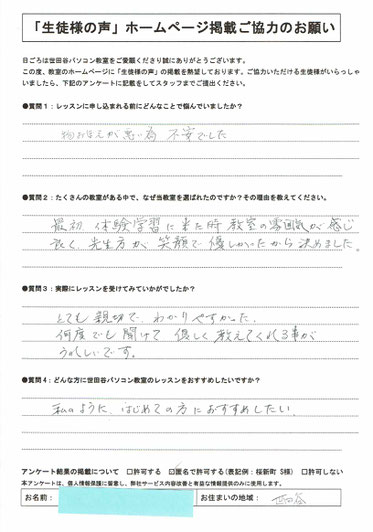 「生徒様の声」ホームページ掲載ご協力のお願い
日ごろは世田谷パソコン教室をご愛顧くださり誠にありがとうございます。
この度、教室のホームページに「生徒様の声」の掲載を熱望しております。ご協力いただける生徒様がいらっしゃ
いましたら、下記のアンケートに記載をしてスタッフまでご提出ください。
●質問1：レッスンに申し込まれる前にどんなことで悩んでいましたか？
物おぼえが悪い為 不安でした
●質問2：たくさんの教室がある中で、なぜ当教室を選ばれたのですか？その理由を教えてください。
最初 体験学習に来た時 教室の雰囲気が感じ
良く、先生方が 笑顔で 優しかったから決めました。
●質問3：実際にレッスンを受けてみていかがでしたか？
とても 親切で、わかりやすかった。
何度でも 聞けて 優しく 教えてくれる事が
うれしいです。
●質問4：どんな方に世田谷パソコン教室のレッスンをおすすめしたいですか？
私のように、はじめての方におすすめしたい。
アンケート結果の掲載について □許可する ☑匿名で許可する(表記例：桜新町 S様) □許可しない
本アンケートは、個人情報保護に留意し、弊社サービス内容改善と有益な情報提供のみに使用します。
お名前： お住まいの地域： 世田谷